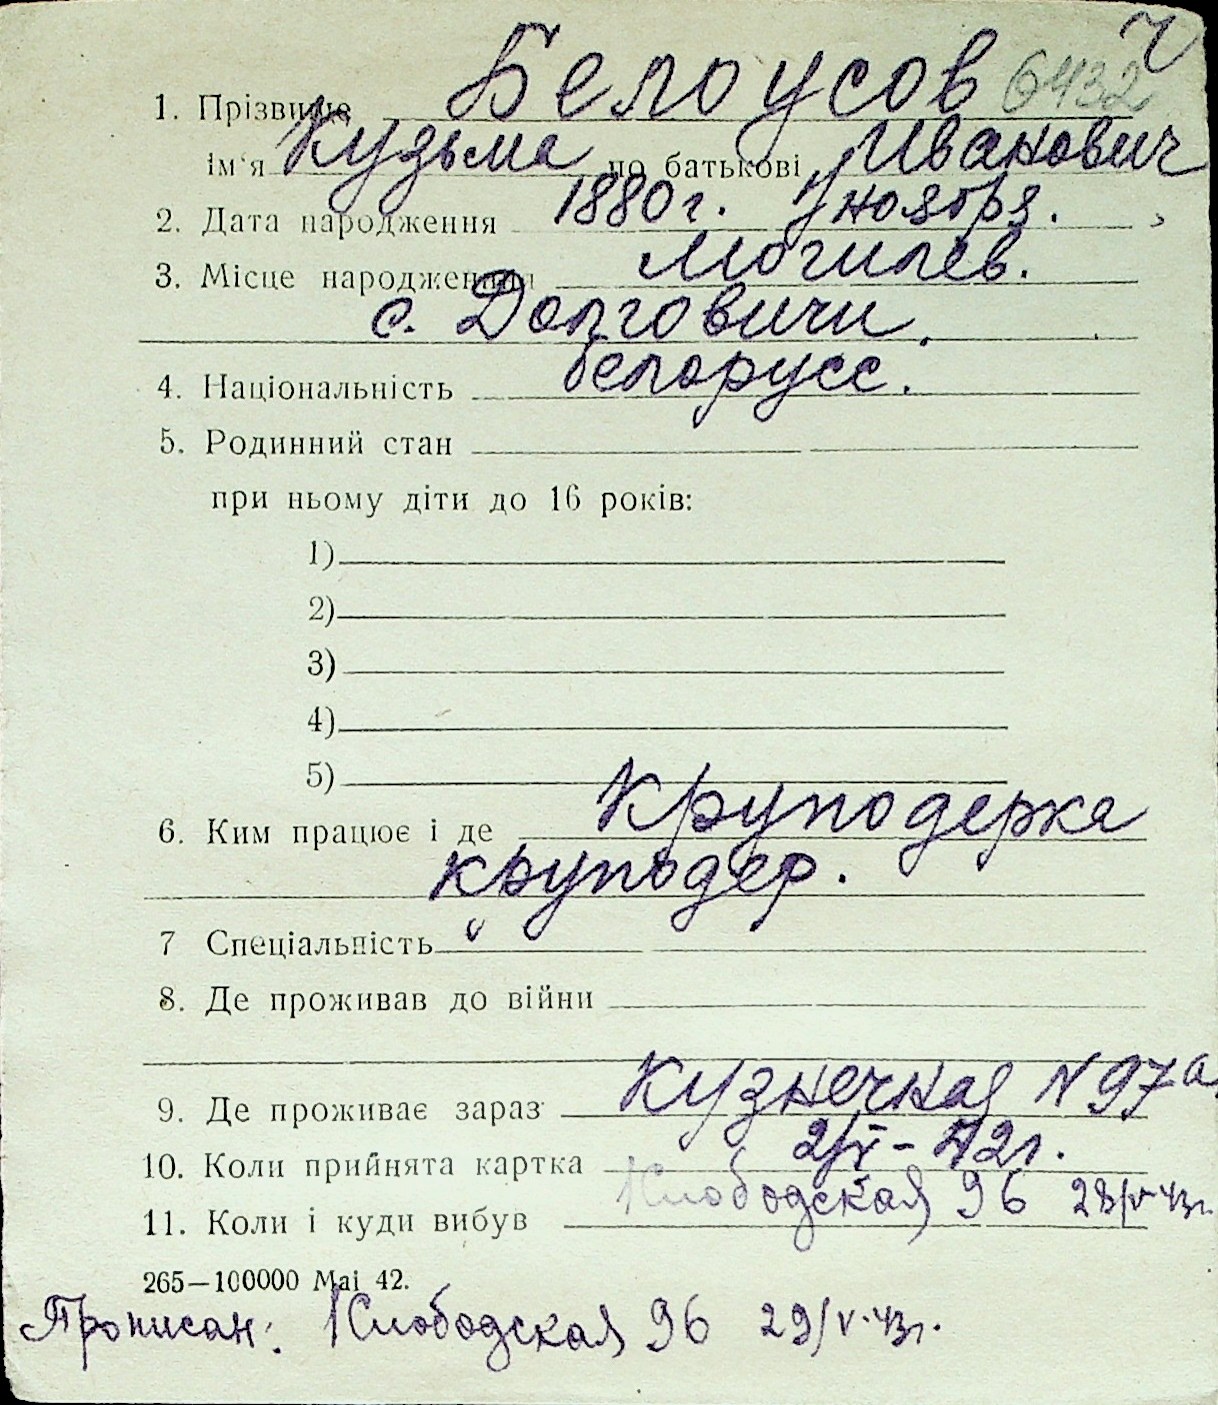 Ч
1. Прізвище Белоусов 6432
ім‘я Кузьма по батькові Иванович
2. Дата народження 1880 г. 1 ноября.
3. Місце народження Могилев.
с. Долговичи.
4. Національність белорусс.
5. Родинний стан
при ньому діти до 16 років:
1)
2)
3)
4)
5)
6. Ким працює і де Круподерка
круподер.
7 Спеціальність
8. Де проживав до війни
9. Де проживає зараз Кузнечная N 97а
10. Коли прийнята картка 2/V – 42 г.
11. Коли і куди вибув Слободская 96 28/V 43г.
265—100000 Маі 42.
Прописан: Слободская 96 29/V.43г.